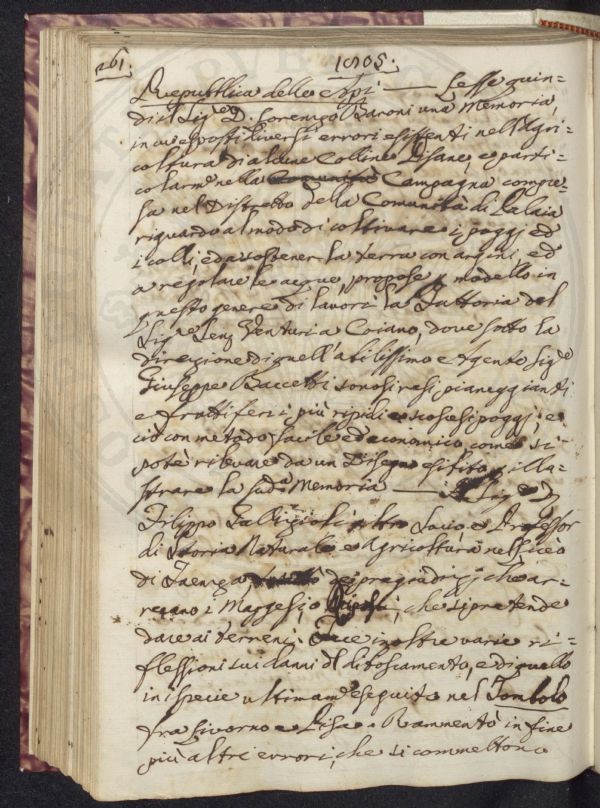 261. 1805.
Repubblica delle Api — Lesse quin=
di il Sigre D. Lorenzo Baroni una Memoria,
in cui espose diversi errori esistenti nell'Agri=
coltura di alcune Colline Pisane, e parti=
colarme nella Campagna compre=
sa nel Distretto della Comunità di Palaia
riguardo al modo di coltivare i poggi ed
i colli, ed a sostener la terra con argini, ed
a regolare le acque, propose p modello in
questo genere di lavori la Fattoria del
Sigre Venturi a Coiano, dove sotto la
direzione di quell'abilissimo Agente Sigre
Giuseppe Baccetti sonosi resi pianeggianti
e fruttiferi i più ripidi e scoscesi poggi, e
ciò con metodo facile ed economico, come si
potè rilevare da un Disegno esibito p illu=
strare la suda Memoria — Il Sige D.
Filippo altro Socio e Professor
di Storia Naturale e Agricoltura nel Liceo
di Faenza dei pregiudizj che ar=
recano i Maggesi, o Riposi, che si pretende
dare ai terreni. Fece inoltre varie ri=
flessioni sui danni del diboscamento, e di quello
in ispecie ultimame eseguito nel Tombolo
fra Livorno e Pisa. Rammentò in fine
più altri errori, che si commettono